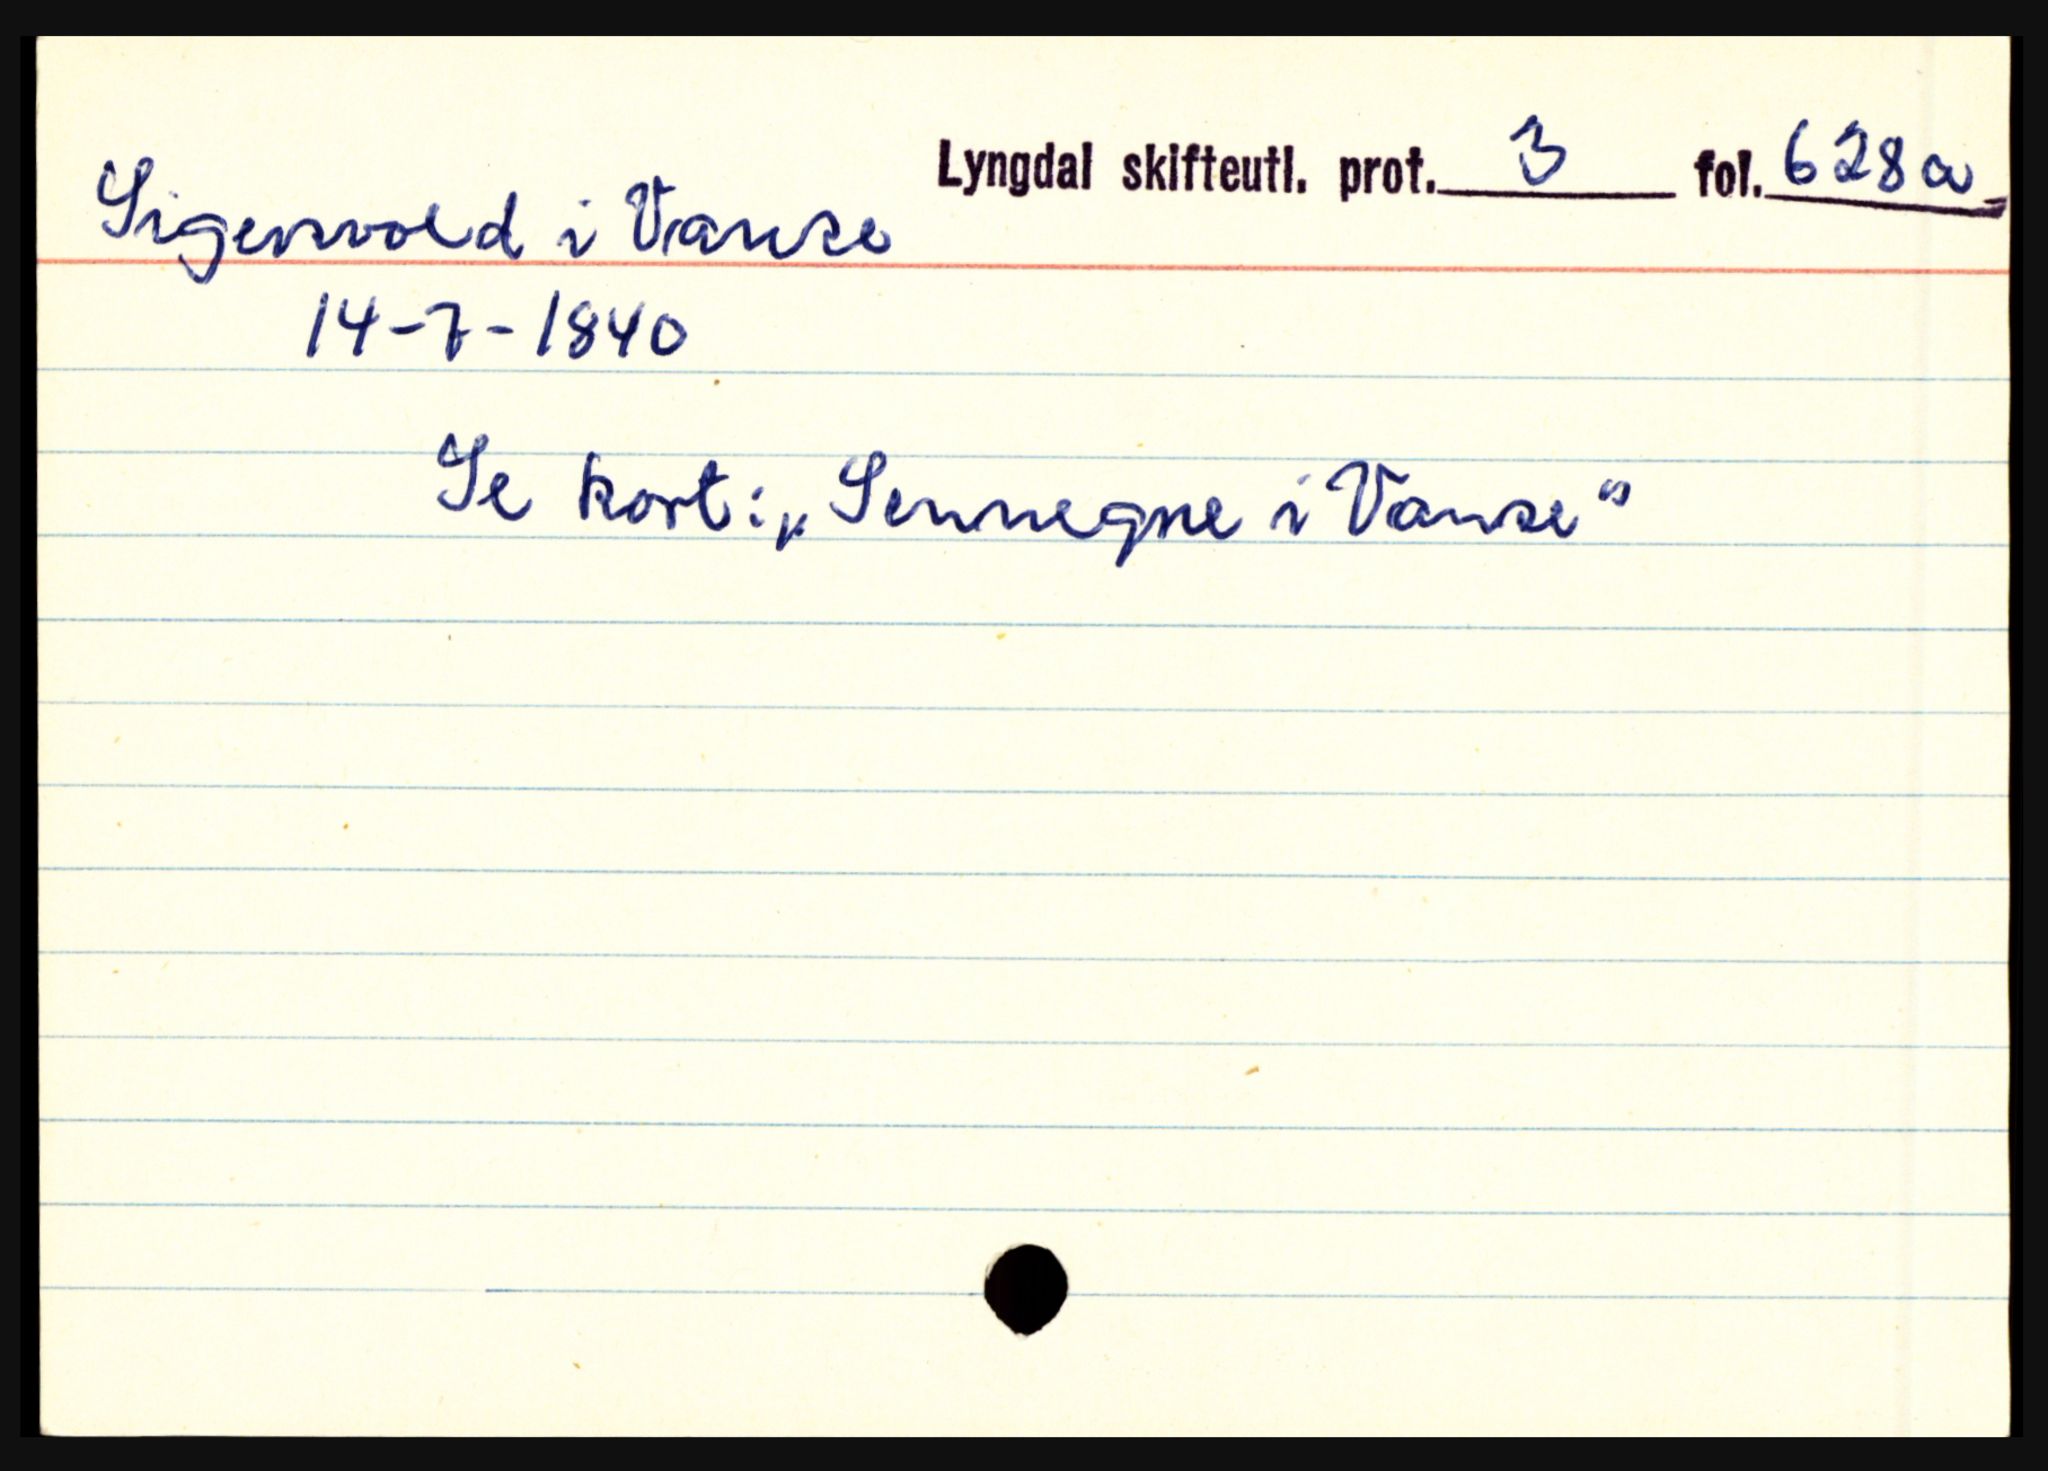 Lyngdal skifteutl. prot. 3 fol. 628a
Sigersvold i Vanse
14-7-1840
Se kort: „Sennegne i Vanse“